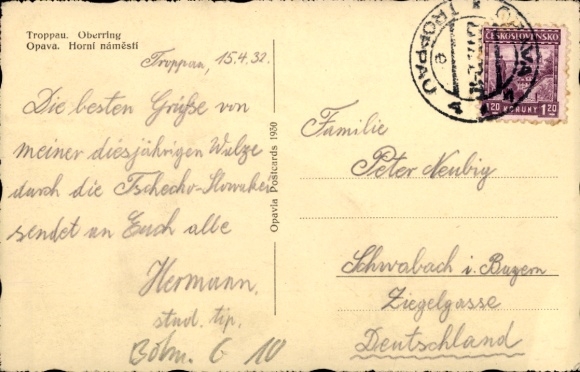 Troppau. Oberring
Opava. Horní náměstí
Troppau, 15.4.32.
Die besten Grüße von
meiner diesjährigen Walze
durch die Tschecho-Slowakei
sendet an Euch alle
Hermann.
stud. tip.
Böhm. G 10
Opavia Postcards 1930
TROPPAU
OPAVA
ČESKOSLOVENSKO
1.20 KORUNY 1.20
Familie
Peter Neubig
Schwabach i. Bayern
Ziegelgasse
Deutschland